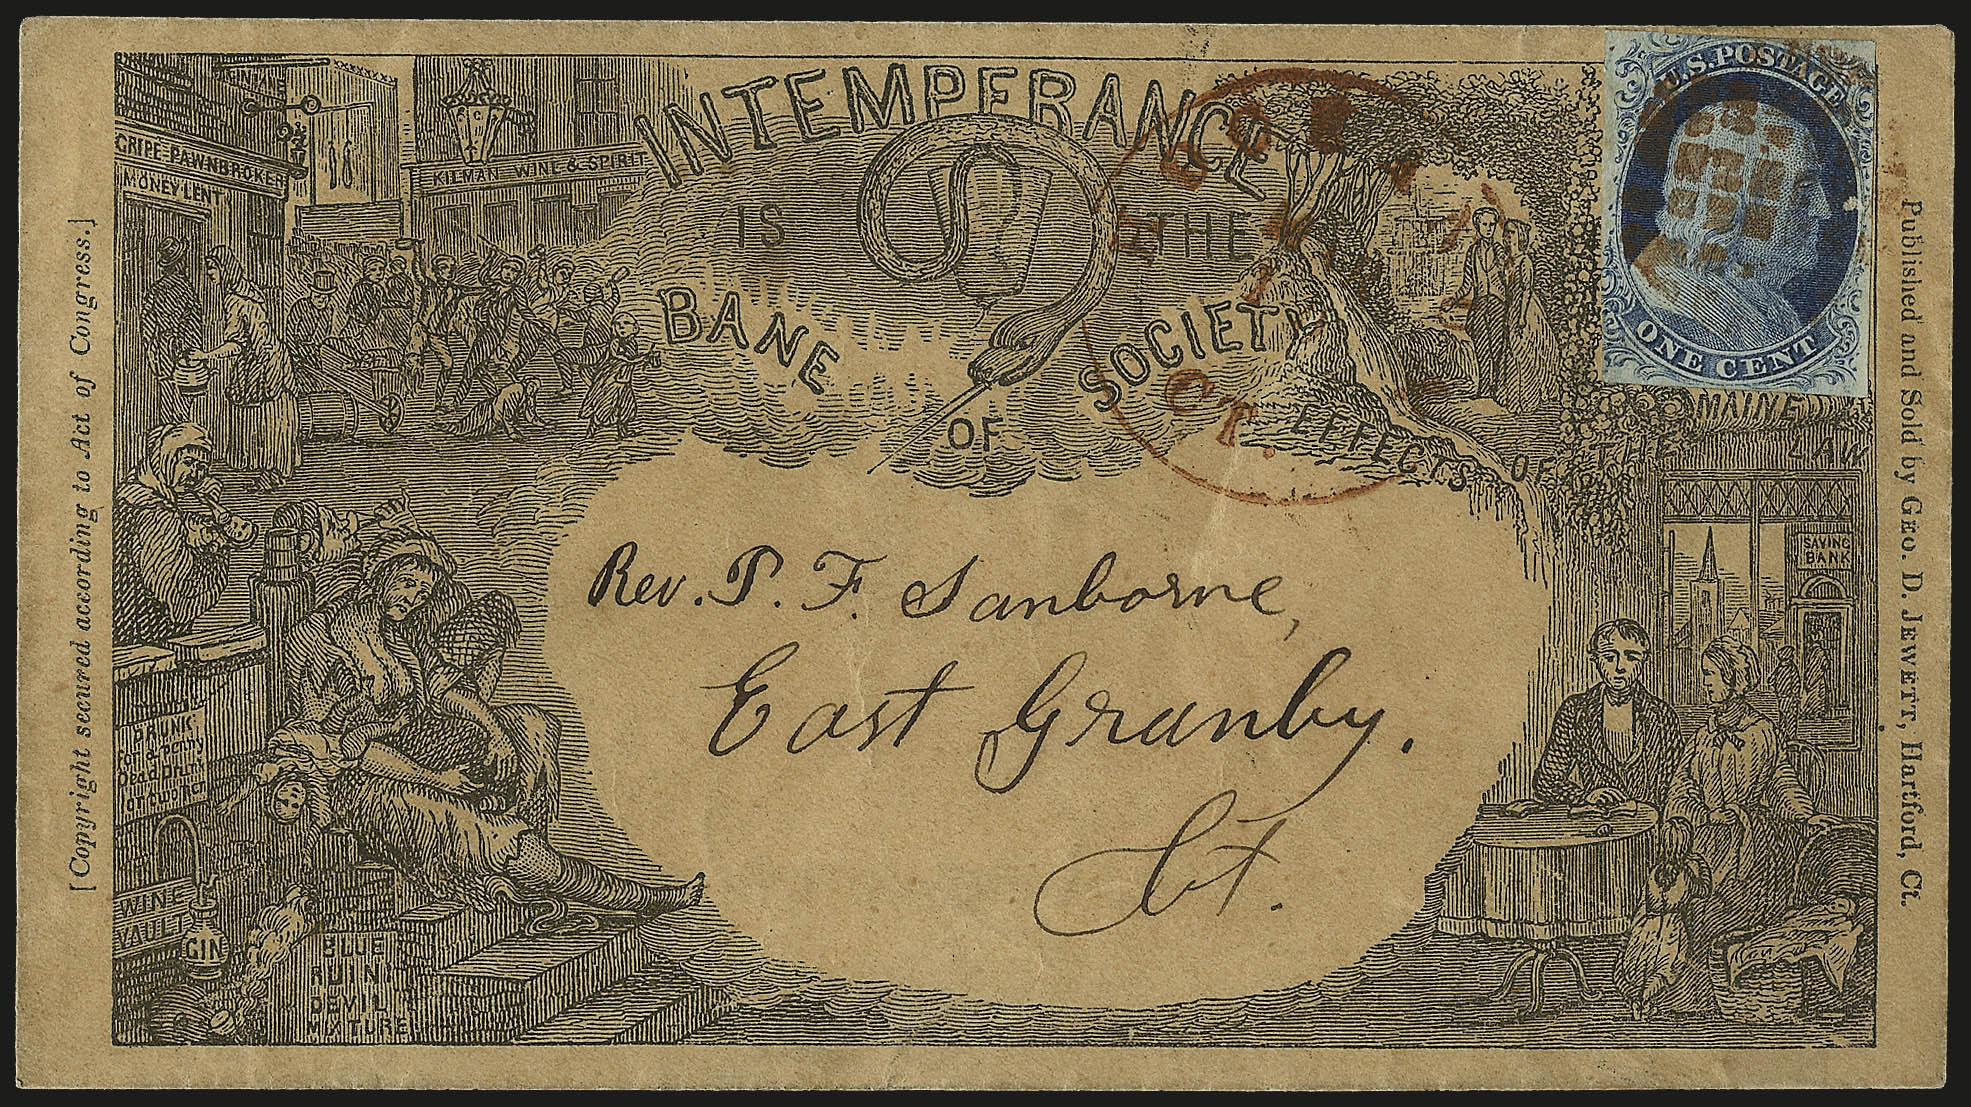 INTEMPERANCE
IS THE
BANE OF SOCIETY
EFFECTS OF THE
MAINE LAW
U.S. POSTAGE
ONE CENT
GRIPE-PAWNBROKER
MONEY LENT
KILMAN WINE & SPIRIT
[Copyright secured according to Act of Congress.]
Published and Sold by GEO. D. JEWETT, Hartford, Ct.
CT.
SAVING
BANK
Rev. P. F. Sanborne,
East Granby.
Ct.
DRUNK
for a penny
Dead Drunk
for two
WINE
VAULT
GIN
BLUE
RUIN
DEVIL
MIXTURE